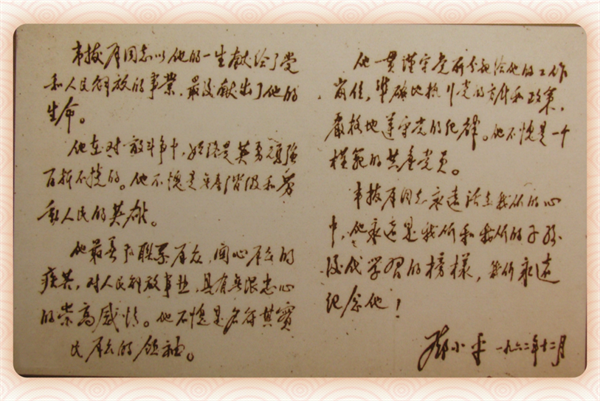 韦拔群同志以他的一生献给了党
和人民解放的事业，最后献出了他的
生命。
他在对敌斗争中，始终是英勇顽强
百折不挠的。他不愧是无产阶级和劳
动人民的英雄。
他最善于联系群众，关心群众的
疾苦，对人民解放事业，具有无限忠心
的崇高感情。他不愧是名符其实
的群众的领袖。
他一贯谨守党所分配给他的工作
岗位，准确地执行党的方针和政策，
严格地遵守党的纪律。他不愧是一个
模范的共产党员。
韦拔群同志永远活在我们的心
中，他永远是我们和我们的子孙
后代学习的榜样，我们永远
纪念他！
邓小平 一九六二年十二月